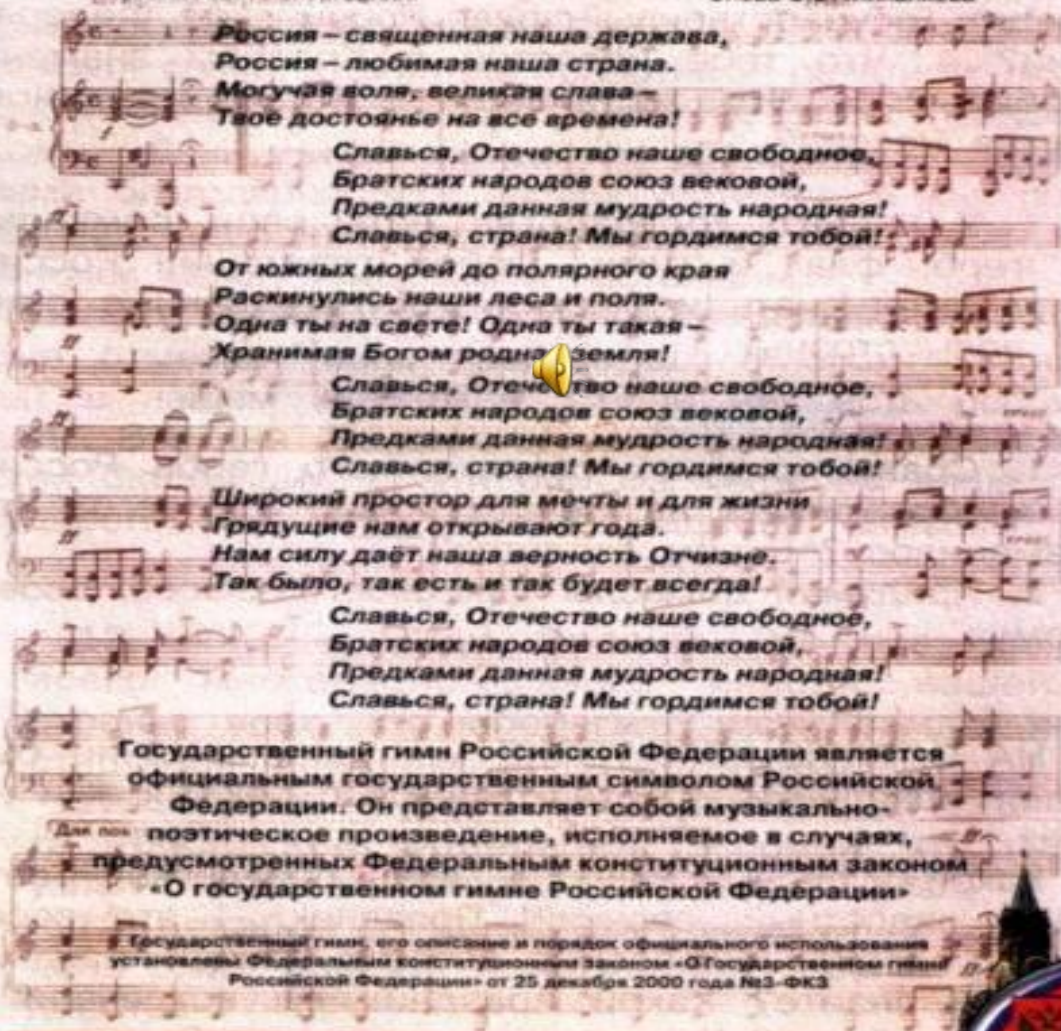 Россия – священная наша держава,
Россия – любимая наша страна.
Могучая воля, великая слава –
Твоё достоянье на все времена!
Славься, Отечество наше свободное,
Братских народов союз вековой,
Предками данная мудрость народная!
Славься, страна! Мы гордимся тобой!
От южных морей до полярного края
Раскинулись наши леса и поля.
Одна ты на свете! Одна ты такая –
Хранимая Богом родная земля!
Славься, Отечество наше свободное,
Братских народов союз вековой,
Предками данная мудрость народная!
Славься, страна! Мы гордимся тобой!
Широкий простор для мечты и для жизни
Грядущие нам открывают года.
Нам силу даёт наша верность Отчизне.
Так было, так есть и так будет всегда!
Славься, Отечество наше свободное,
Братских народов союз вековой,
Предками данная мудрость народная!
Славься, страна! Мы гордимся тобой!
Государственный гимн Российской Федерации является
официальным государственным символом Российской
Федерации. Он представляет собой музыкально-
поэтическое произведение, исполняемое в случаях,
предусмотренных Федеральным конституционным законом
«О государственном гимне Российской Федерации»
Государственный гимн, его описание и порядок официального использования
установлены Федеральным конституционным законом «О Государственном гимне
Российской Федерации» от 25 декабря 2000 года №3-ФКЗ